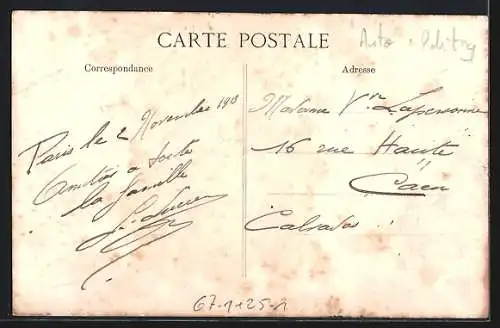 CARTE POSTALE
Correspondance
Adresse
Paris le 2 Novembre 190
Amitiés a toute
la famille
Madame Vve Lapersonne
16 rue Haute
Caen
Calvados
67-1125-1